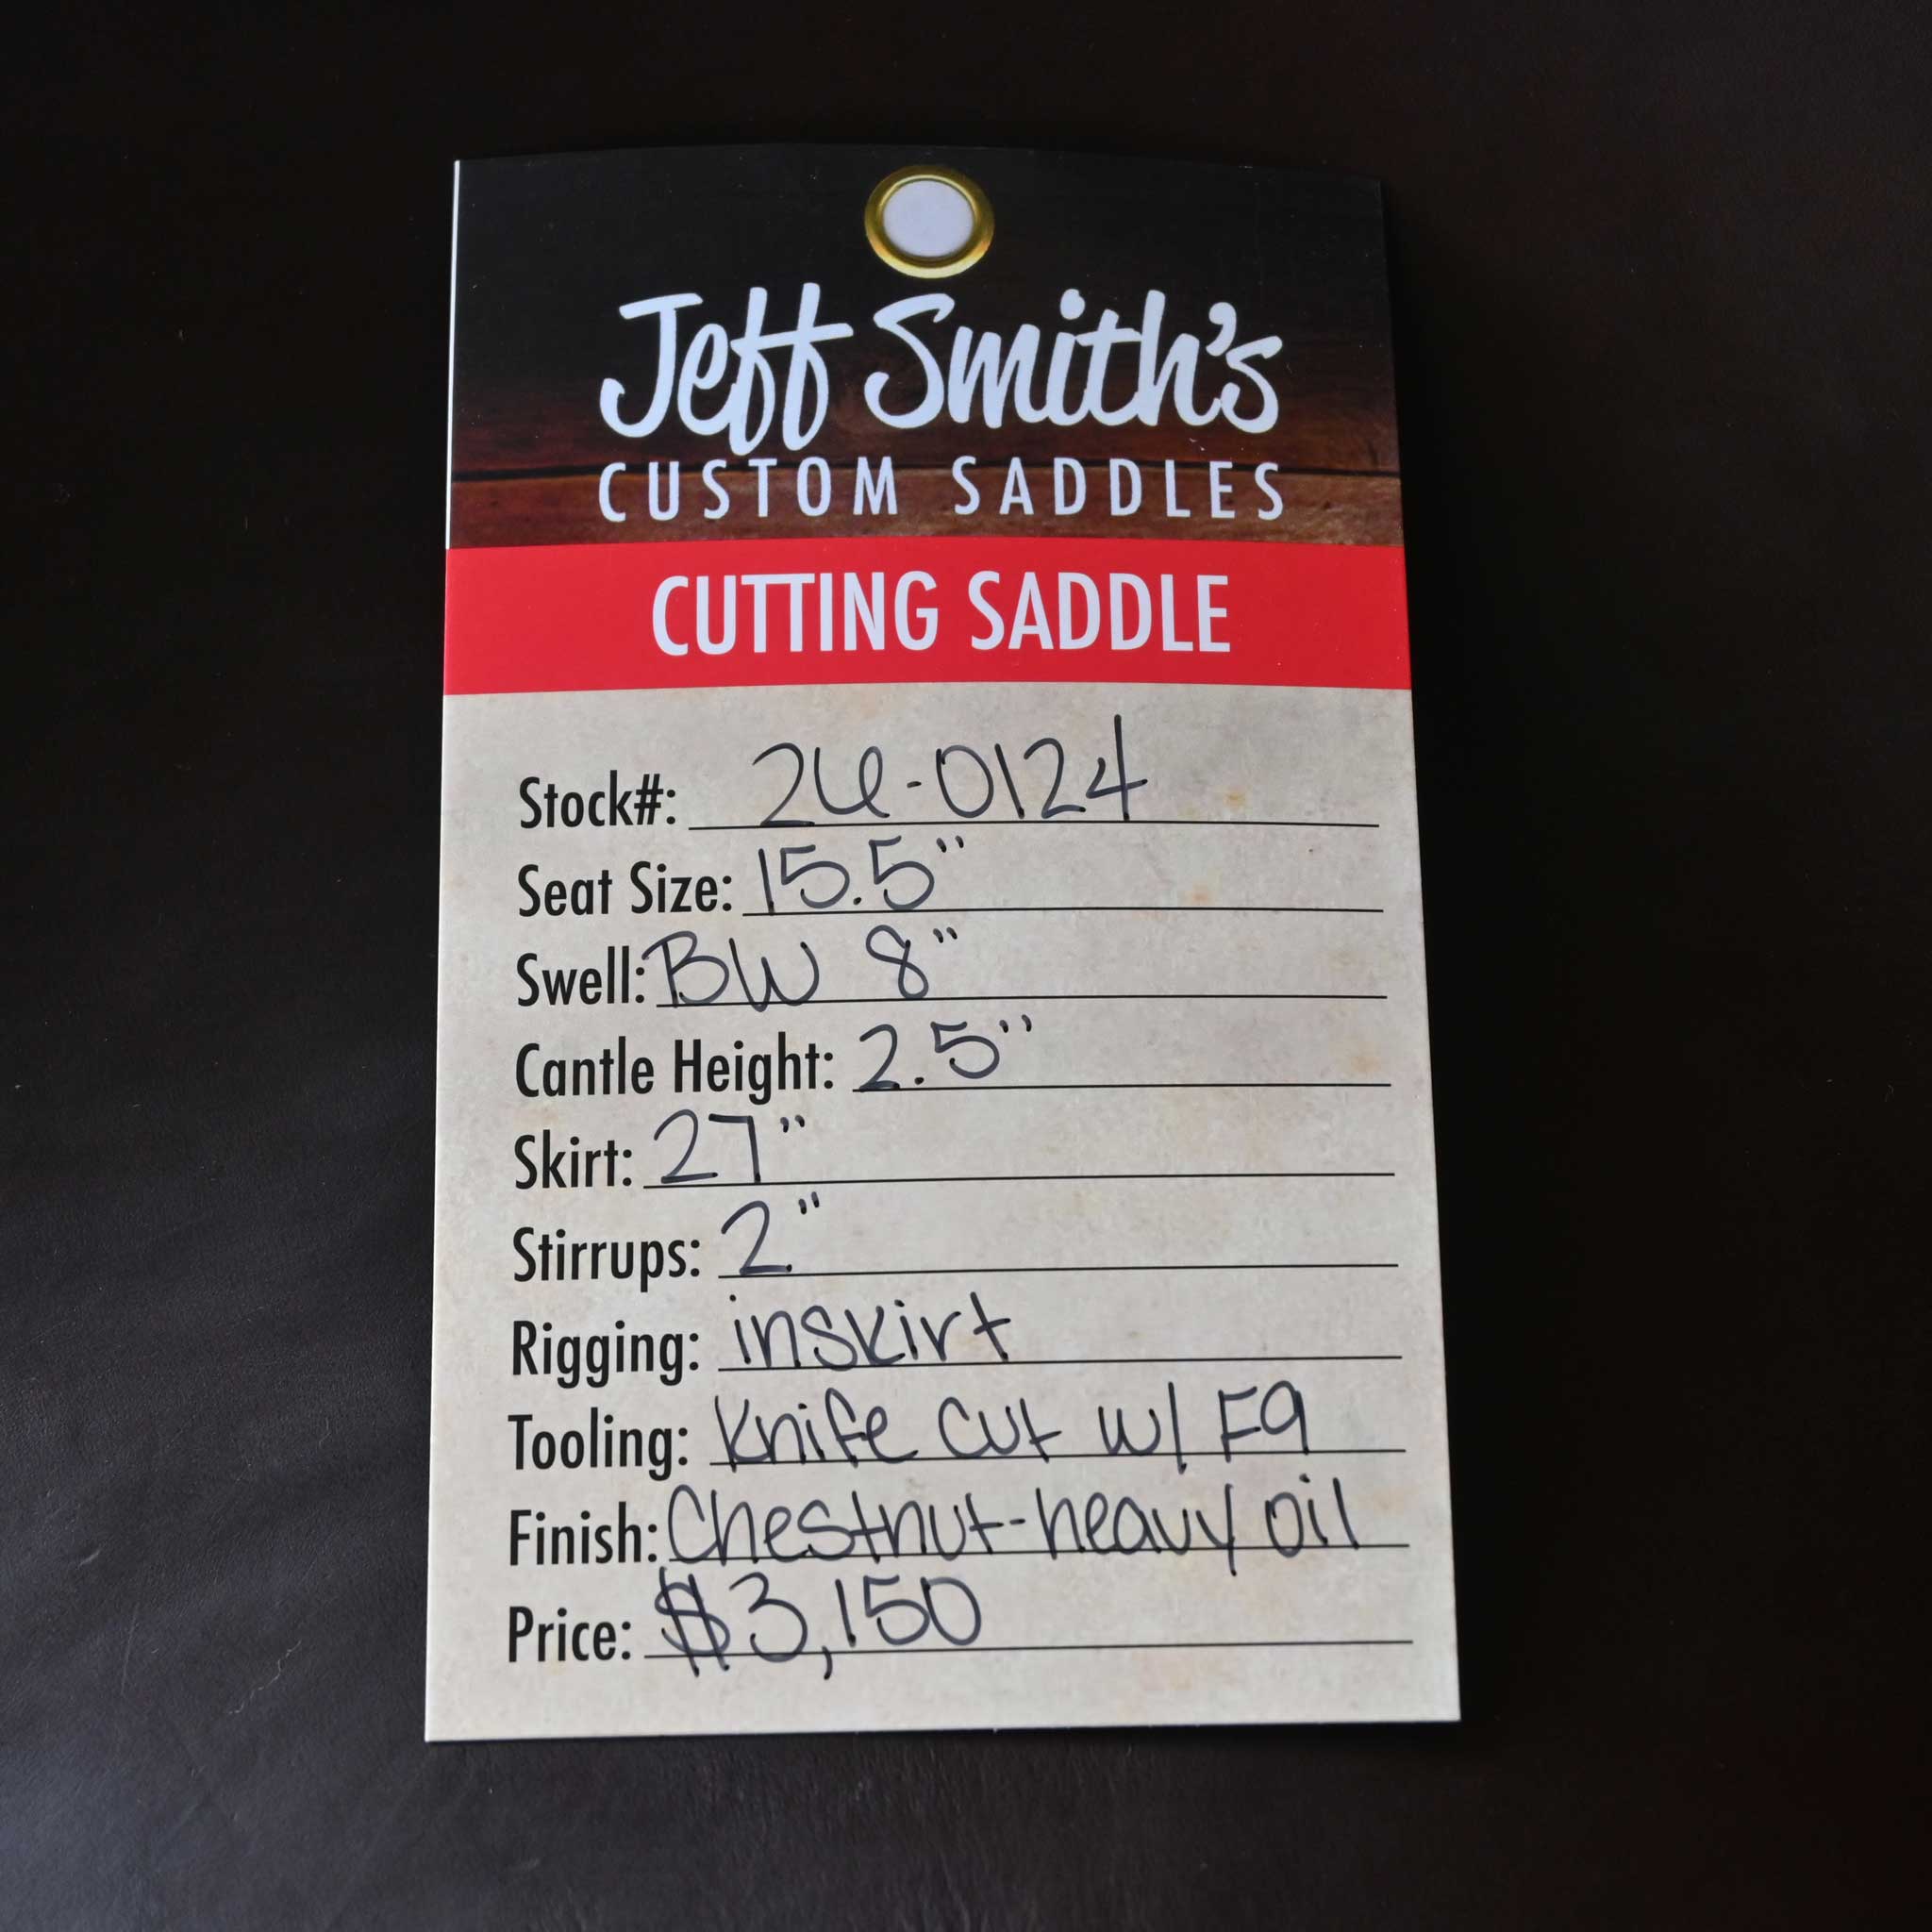 Jeff Smith's
CUSTOM SADDLES
CUTTING SADDLE
Stock#: 26-0124
Seat Size: 15.5"
Swell: BW 8"
Cantle Height: 2.5"
Skirt: 27"
Stirrups: 2"
Rigging: inskirt
Tooling: Knife cut w/ F9
Finish: Chestnut-heavy oil
Price: $3,150